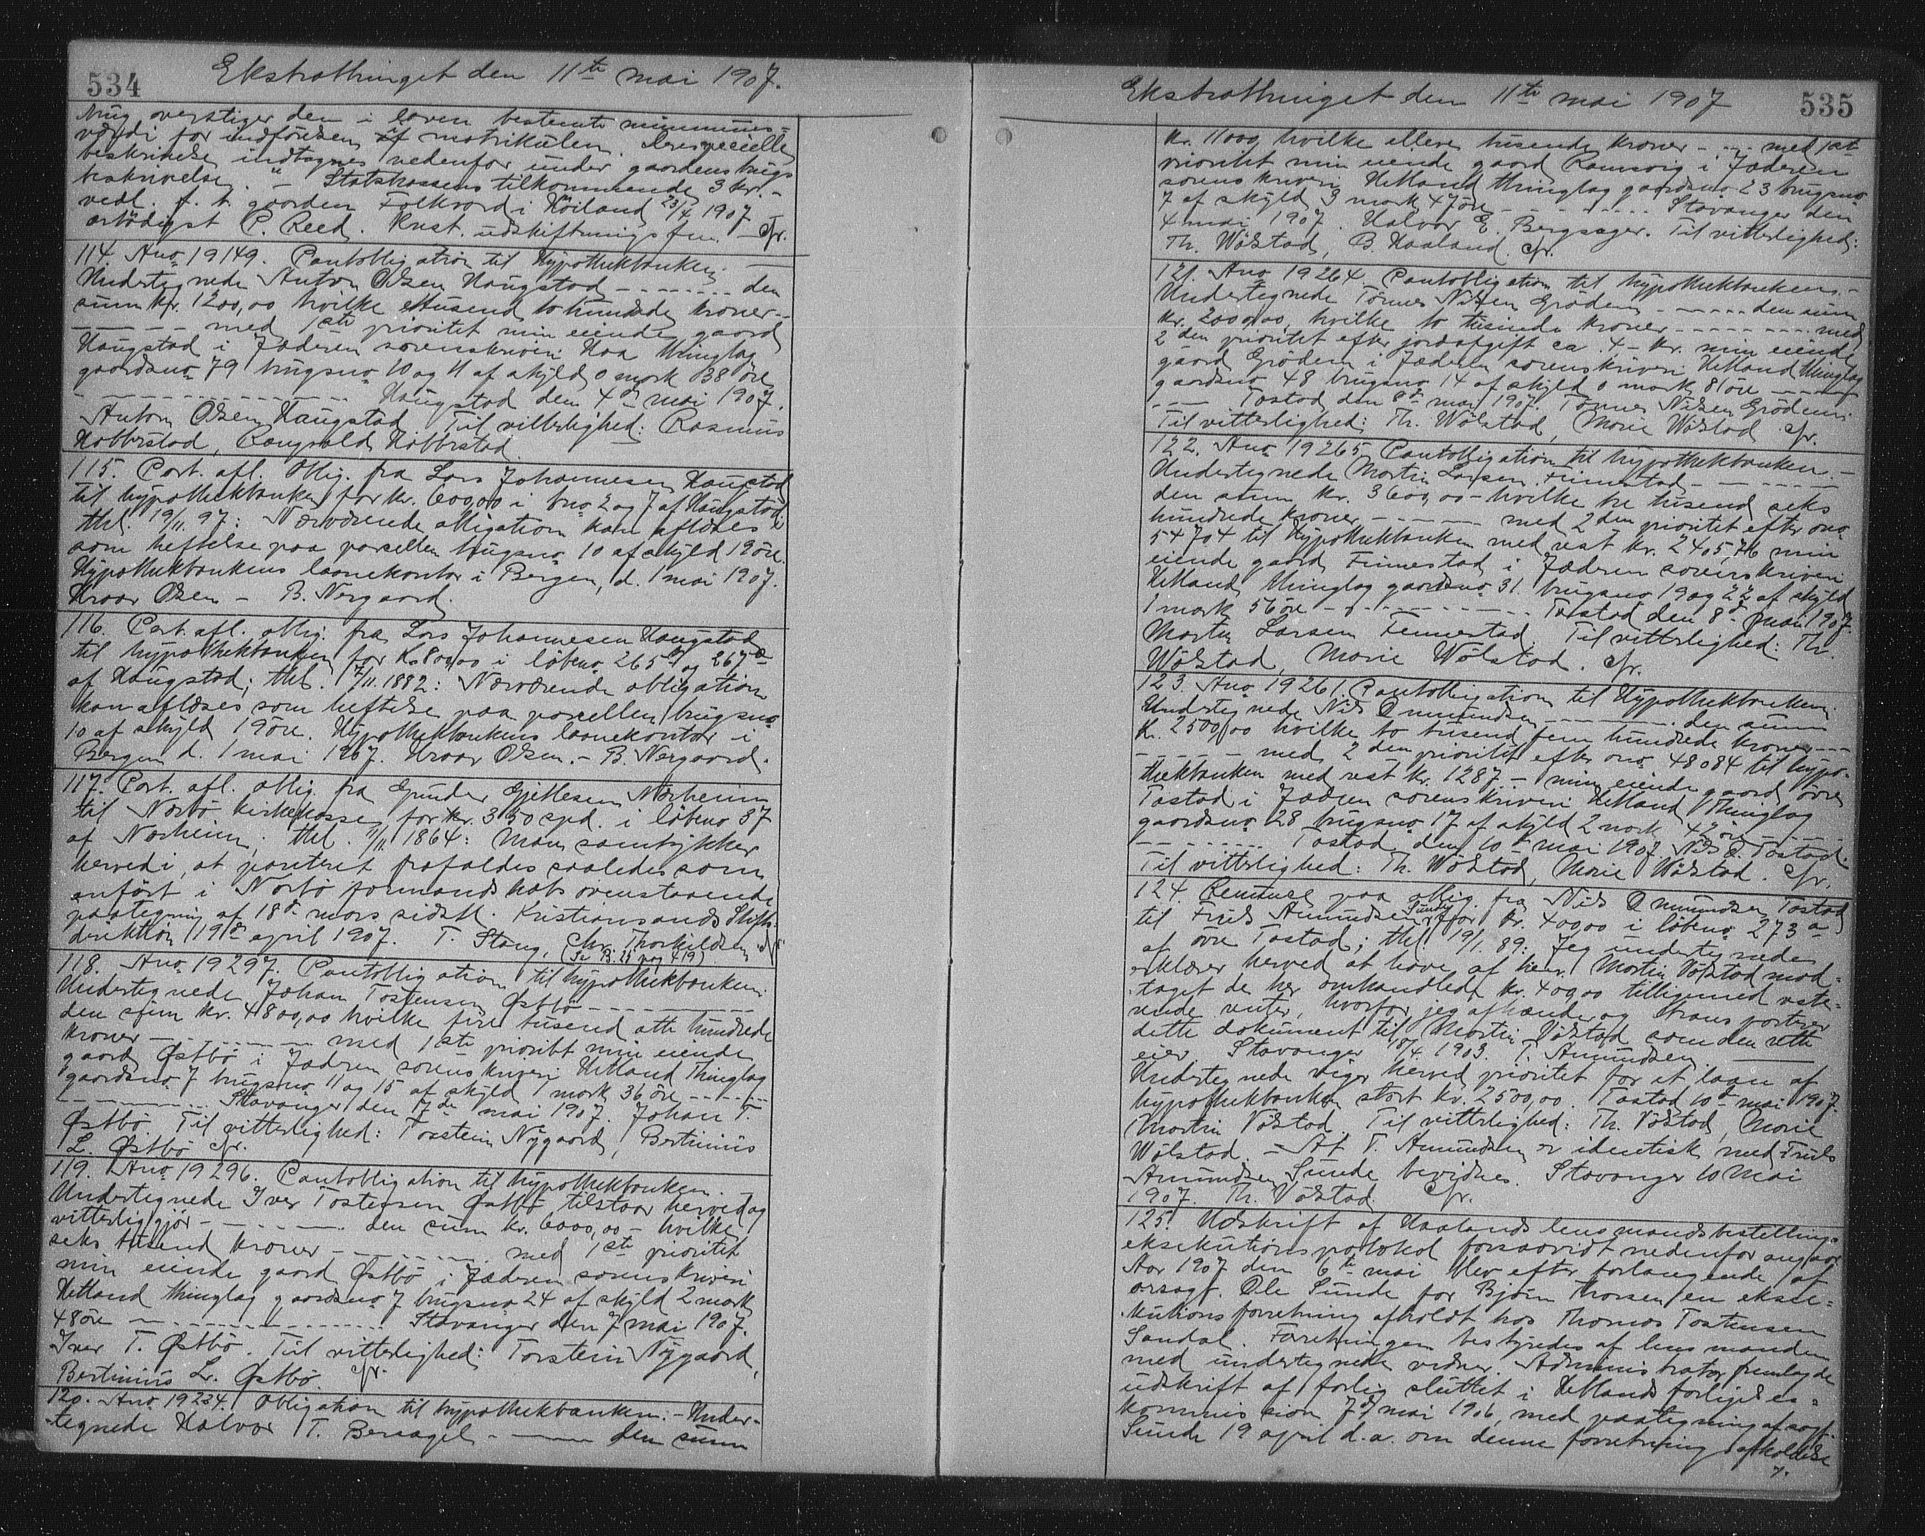 534
Ekstrathinget den 11te mai 1907.
verstiger den i loven bestemte minimums-
værdi for indførelsen af matrikulen. Dens specielle
beskrivelse indtages nedenfor under gaardens brugs
beskrivelse. " – Statskassens tilkommende 3 kr. –
vedl. f. t. gaarden Folkvord i Höiland 23/4 1907
ærbödigst P. Reed. Knst. udskiftningsfm. – Cfr.
114. Ano 19149. Pantobligation til Hypothekbanken. –
Undertegnede Anton Olsen Haugstad – – – – den
sum kr. 1200,00 hvilke ettusend tohundrede kroner –
– – – – med 1ste prioritet min eiende gaard
Haugstad i Jæderen sorenskriveri Haa thinglag
gaardsno 79 brugsno 10 og 11 af skyld 0 mark 38 öre
– – – – – – Haugstad den 4de mai 1907.
Anton Olsen Haugstad. Til vitterlighed: Rasmus
Hobberstad, Rangvald Hobberstad.
115. Part. afl. oblig. fra Lars Johannesen Haugstad
til hypothekbanken for kr. 600,00 i bno 2 og 7 af Haugstad;
thl. 19/11. 97: Nærværende obligation kan aflæses
som heftelse paa parcellen brugsno 10 af skyld 19 öre.
Hypothekbankens laanekontor i Bergen, d. 1 mai 1907.
Hroar Olsen – B. Nergaard.
116. Part. afl. oblig. fra Lars Johannesen Haugstad
til hypothekbanken for kr. 800,00 i löbeno 265 og 267a
af Haugstad; thl. 17/11. 1882: Nærværende obligation
kan aflæses som heftelse paa parcellen brugsno
10 af skyld 19 öre. Hypothekbankens laanekontor i
Bergen d. 1 mai 1907. Hroar Olsen. – B. Nergaard.
117. Part. afl. oblig. fra Gunder Gjetlesen Norheim
til Narbö kirkekasse for kr. 350 spd. i löbeno 87
af Norheim; thl. 1864: Man samtykker
herved i, at panteret frafaldes saaledes som
anfört i Narbö formandskabs ovenstaaende
paategning af 18de mars sidstl. Kristiansands Stifts-
direktion 19de april 1907. T. Stang, Chr. Thorkildsen
(Se B. 29 pag 419)
118. Ano 19297. Pantobligation til hypothekbanken.
Undertegnede Johan Tostensen Østbö – – – –
den sum kr. 4800,00 hvilke fire tusend otte hundrede
kroner – – – – med 1ste prioritet min eiende
gaard Østbö i Jæderen sorenskriveri Hetland thinglag
gaardsno 7 brugsno 11 og 15 af skyld 1 mark 36 öre – – –
– – – – Stavanger den 7de mai 1907. Johan T.
Østbö. Til vitterlighed: Torstein Nygaard, Bertinius
L. Østbö Cfr.
119. Ano 19296. Pantobligation til hypothekbanken.
Undertegnede Iver Tostensen Østbö tilstaar herved og
vitterliggjör – – – – den sum kr. 6000,00 – hvilke
seks tusend kroner – – – – med 1ste prioritet
min eiende gaard Østbö i Jæderen sorenskriveri
Hetland thinglag gaardsno 7 brugsno 24 af skyld 2 mark
48 öre – – – – – Stavanger den 7 mai 1907.
Iver T. Østbö. Til vitterlighed: Torstein Nygaard,
Bertinius L. Østbö. Cfr.
120. Ano 19234. Obligation til hypothekbanken: – Under-
tegnede Halvor T. Bersagel – – – den sum
Ekstrathinget den 11te mai 1907
535
kr. 11000 hvilke elleve tusende kroner – – – med 1ste
prioritet min eiende gaard Ramsvig i Jæderen
sorenskriveri Hetland thinglag gaardsno 23 brugsno
7 af skyld 3 mark 47 öre – – – – Stavanger den
4 mai 1907. Halvor E. Bergsager. Til vitterlighed:
Th. Wölstad, B. Haaland. Cfr.
121. Ano 19264. Pantobligation til hypothekbanken. –
Undertegnede Tönnes Nilsen Grödem – – – den sum
kr. 2000,00, hvilke to tusinde kroner – – – – med
2den prioritet efter jordafgift ca. 4 – kr. min eiende
gaard Grödem i Jæderen sorenskriveri Hetland thinglag
gaardsno 48 brugsno 14 af skyld 0 mark 81 öre – – –
– – – Tastad den 8de mai 1907. Tönnes Nilsen Grödem.
Til vitterlighed: Th. Wölstad, Marie Wölstad Cfr.
122. Ano 19265 Pantobligation til hypothekbanken. –
Undertegnede Martin Larsen Finnestad – – – – –
den sum kr. 3600,00 – hvilke tre tusend seks
hundrede kroner – – – – med 2den prioritet efter ono
54704 til Hypothekbanken med rest kr. 2405,76 min
eiende gaard Finnestad i Jæderen sorenskriveri
Hetland thinglag gaardsno 31 brugsno 19 og 22 af skyld
1 mark 56 öre – – – – – Tastad den 8de mai 1907.
Martin Larsen Finnestad. Til vitterlighed: Th.
Wölstad, Marie Wölstad. Cfr.
123. Ano 19261. Pantobligation til Hypothekbanken.
Undertegnede Nils Omundsen – – – – – den sum
kr. 2500,00 hvilke to tusend fem hundrede kroner – – –
– – – – med 2den prioritet efter ono 48084 til hypo-
thekbanken med rest kr. 1287 – min eiende gaard övre
Tastad i Jæderen sorenskriveri Hetland thinglag
gaardsno 28 brugsno 17 af skyld 2 mark 42 öre – – –
– – – – Tastad den 10de mai 1907. Nils O. Tastad.
Til vitterlighed: Th. Wölstad, Marie Wölstad. Cfr.
124. paa oblig. fra Nils Omundsen Tastad
til Truls Amundsen Sunde for kr. 400,00 i löbeno 273a
af övre Tastad; thl. 19/1. 89: Jeg undertegnede
erklærer herved at have af herr Martin Völstad mod-
taget de her omhandlede kr. 400,00 tilligemed reste-
rende renter, hvorfor jeg afhænder og transporterer
dette dokument til Martin Völstad som den rette
eier. Stavanger 1903. T. Amundsen.
Undertegnede viger herved prioritet for et laan af
hypothekbanken stort kr. 2500,00. Tastad 10de mai 1907.
Martin Völstad. Til vitterlighed: Th. Völstad, Marie
Wölstad. – At T. Amundsen er identisk med Truls
Amundsen Sunde bevidnes. Stavanger 10 mai
1907. Th. Völstad. Cfr.
125. Udskrift af Haalands lensmandsbestillings-
eksekutionsprotokol forsaavidt nedenfor angaar
Aar 1907 den 6te mai blev efter forlangende af
orsagf. Ole Sunde for Bjørn Thorsen en ekse-
kutionsforretning afholdt hos Thomas Tostensen
Sandal. Forretningen bestyredes af lensmanden
med undertegnede vidner. Administrator fremlagde
udskrift af forlig sluttet i Hetlands forligelses-
kommission 7de mai 1906, med paategning af sagf.
Sunde 19 april d.a. om denne forretnings afholdelse